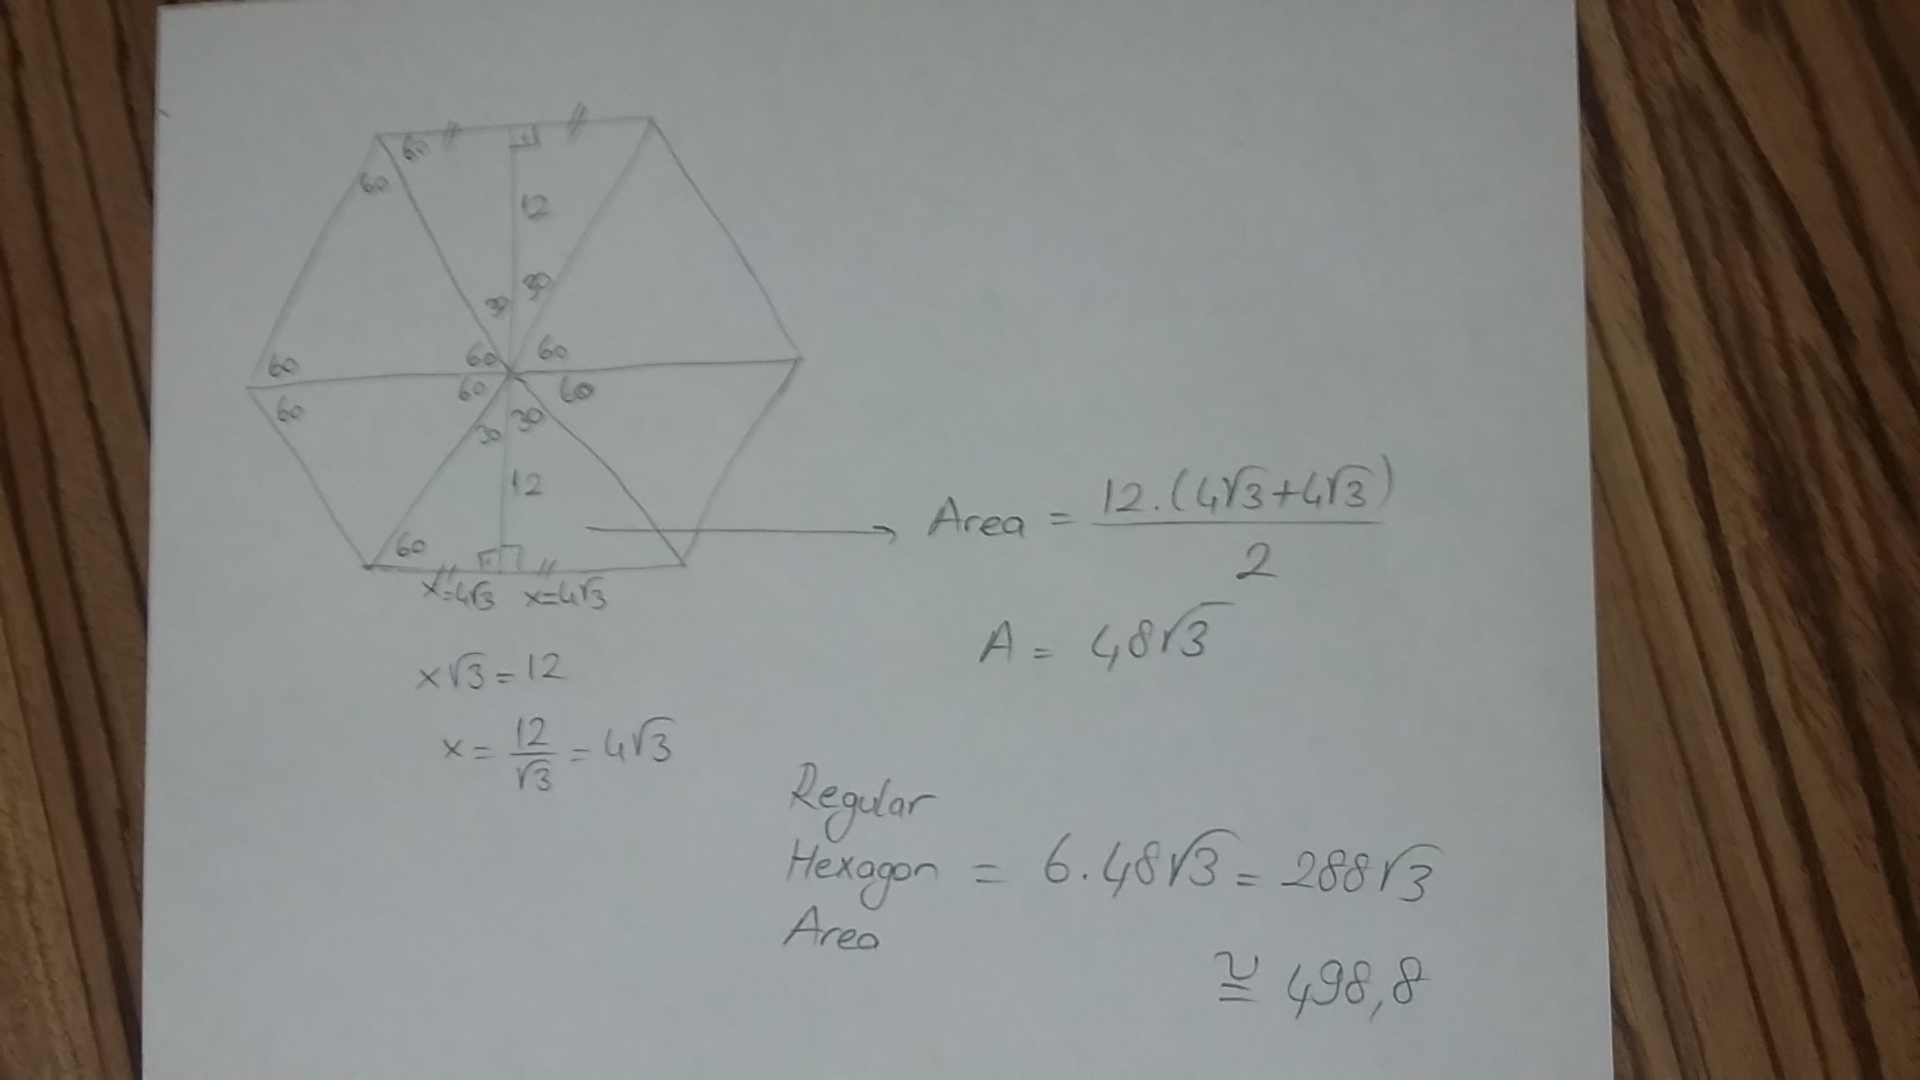 60
60
12
30
30
60
60
60
60
60
60
30
30
12
60
x=4√3 x=4√3
x√3=12
x = 12/√3 = 4√3
Area = 12.(4√3+4√3)/2
A = 48√3
Regular
Hexagon = 6.48√3 = 288√3
Area
≅ 498,8